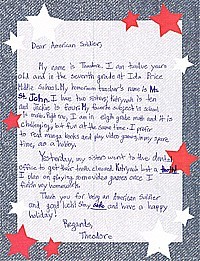 Dear American Soldier,
My name is Theodore. I am twelve years
old and in the seventh grade at Ida Price
Middle School. My homeroom teacher's name is Ms.
St. John. I have two sisters; Kathryn is ten
and Jackie is four. My favorite subject in school
is math. Right now, I am in eigth grade math and it is
challenging, but fun at the same time. I prefer
to read manga books and play video games in my spare
time, as a hobby.
Yesterday, my sisters went to the dentist
office to get their teeth cleaned. Kathryn lost a tooth!
I plan on playing some video games once I
finish my homework.
Thank you for being an American soldier
and good luck! Stay safe and have a happy
holiday!
Regards,
Theodore